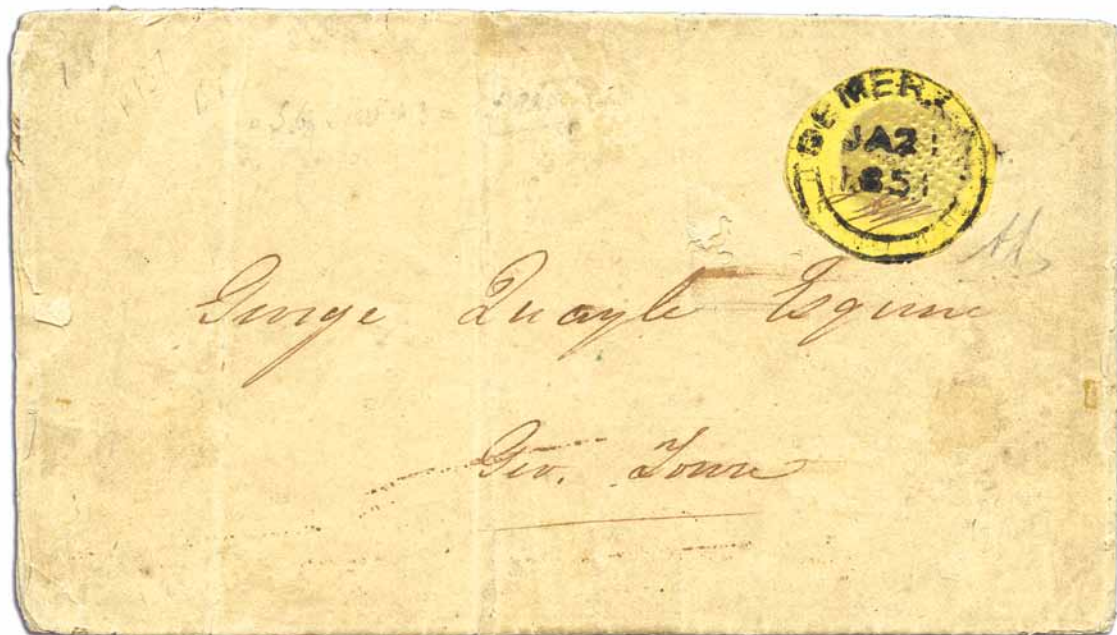 DEMERA
JA21
1851
George Quayle Esquire
Geo. Town